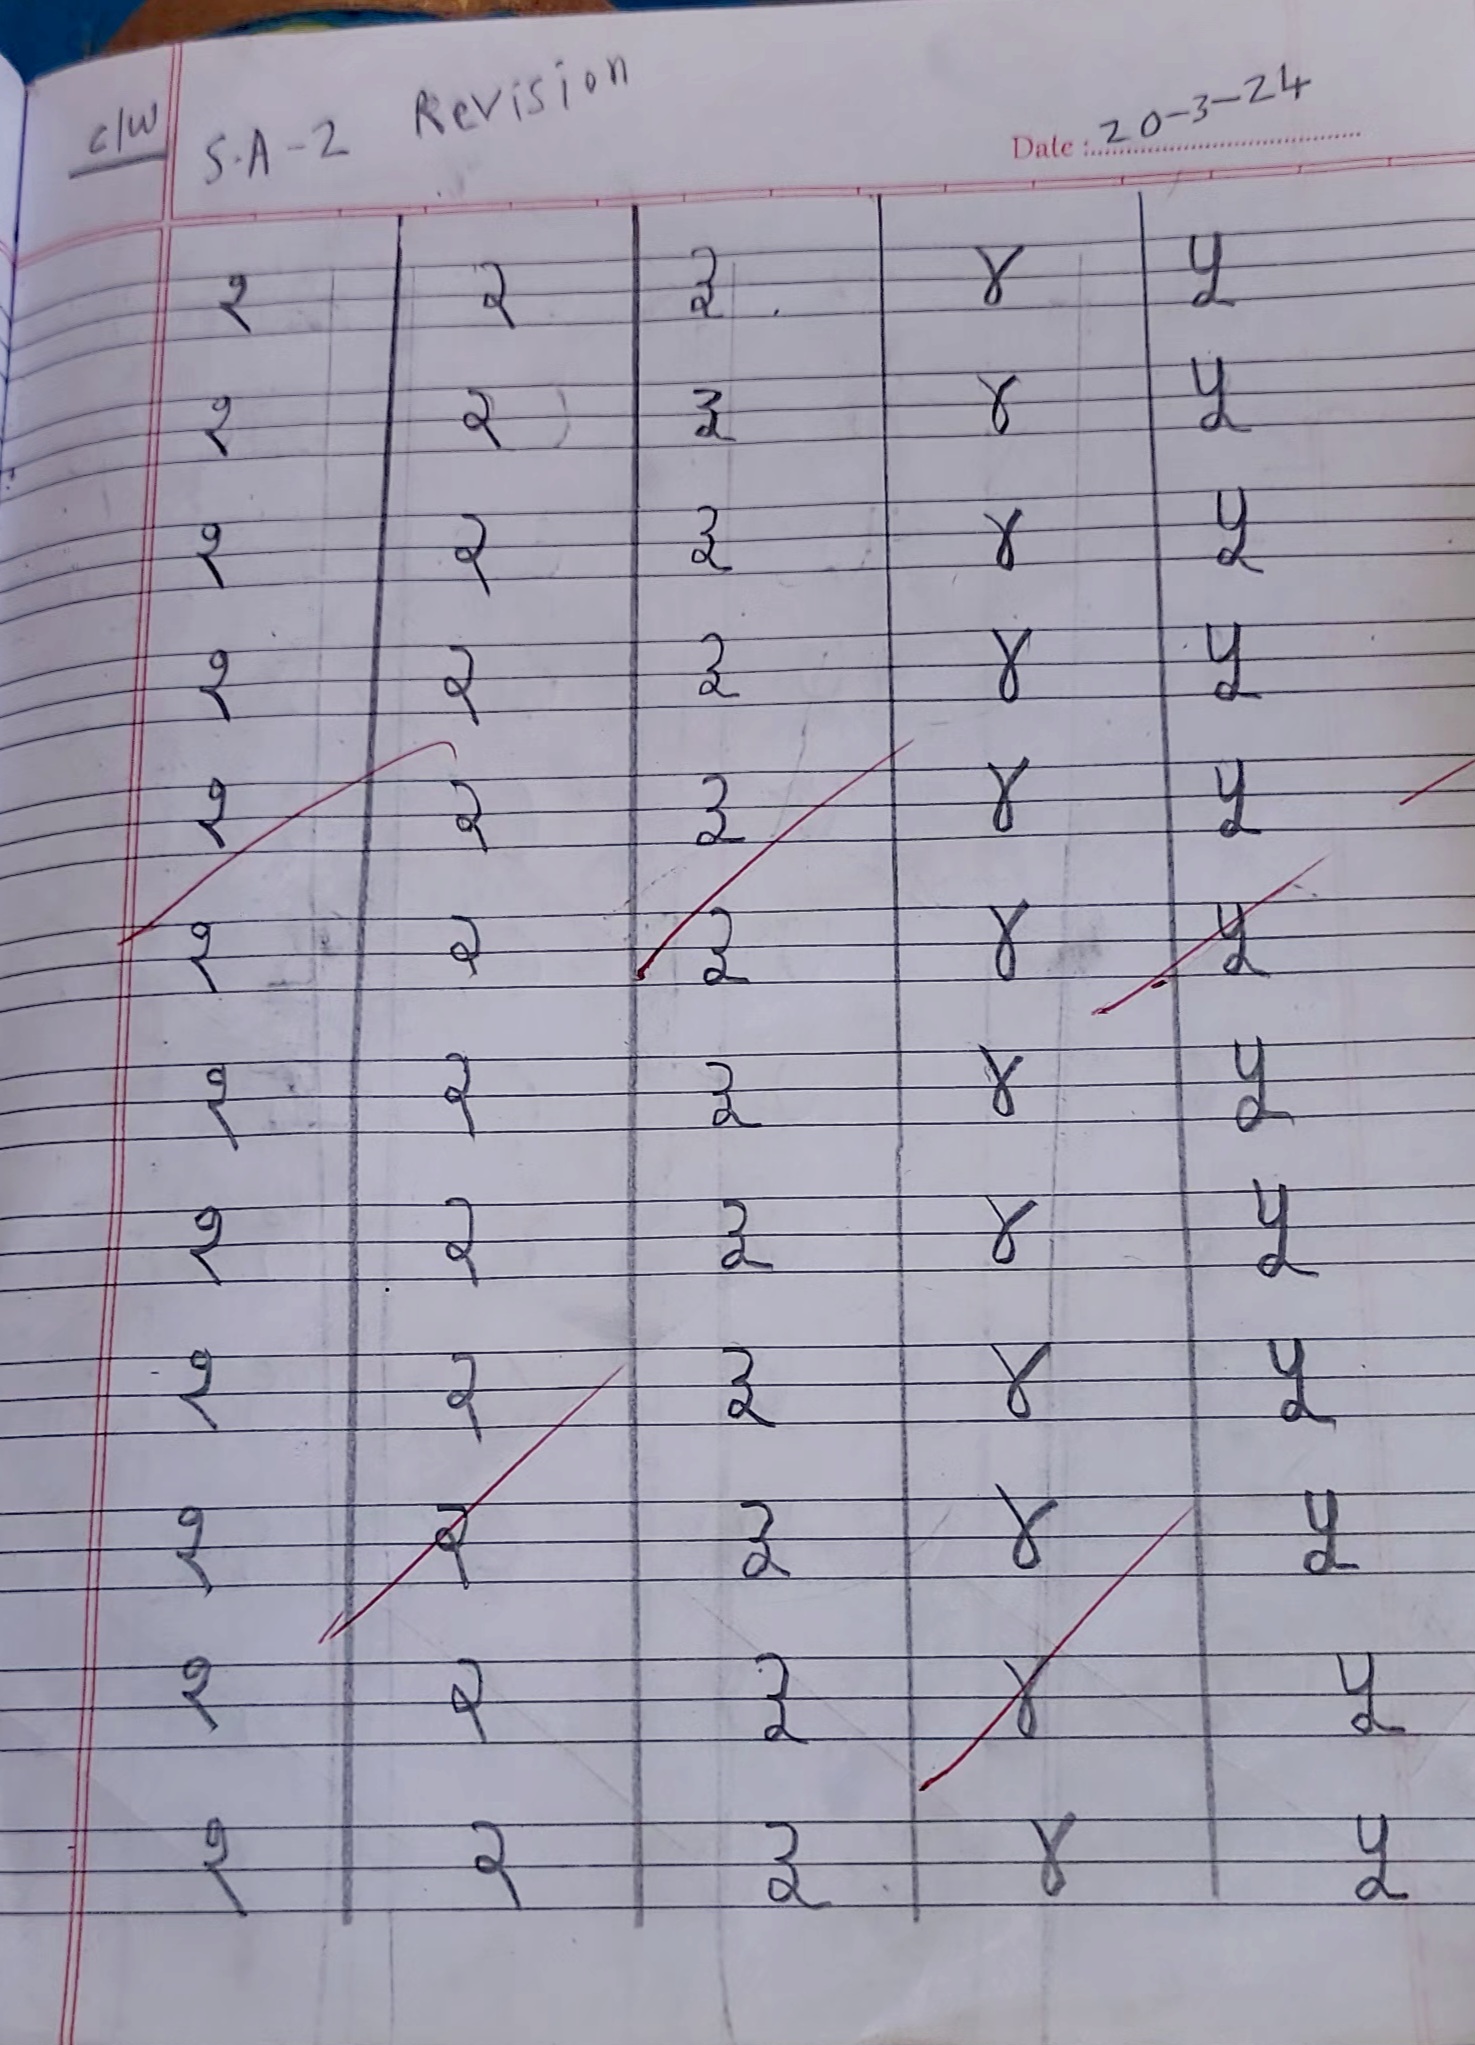 c/w
S.A-2 Revision
Date : 20-3-24
१ २ ३ ४ ५
१ २ ३ ४ ५
१ २ ३ ४ ५
१ २ ३ ४ ५
१ २ ३ ४ ५
१ २ ३ ४ ५
१ २ ३ ४ ५
१ २ ३ ४ ५
१ २ ३ ४ ५
१ २ ३ ४ ५
१ २ ३ ४ ५
१ २ ३ ४ ५